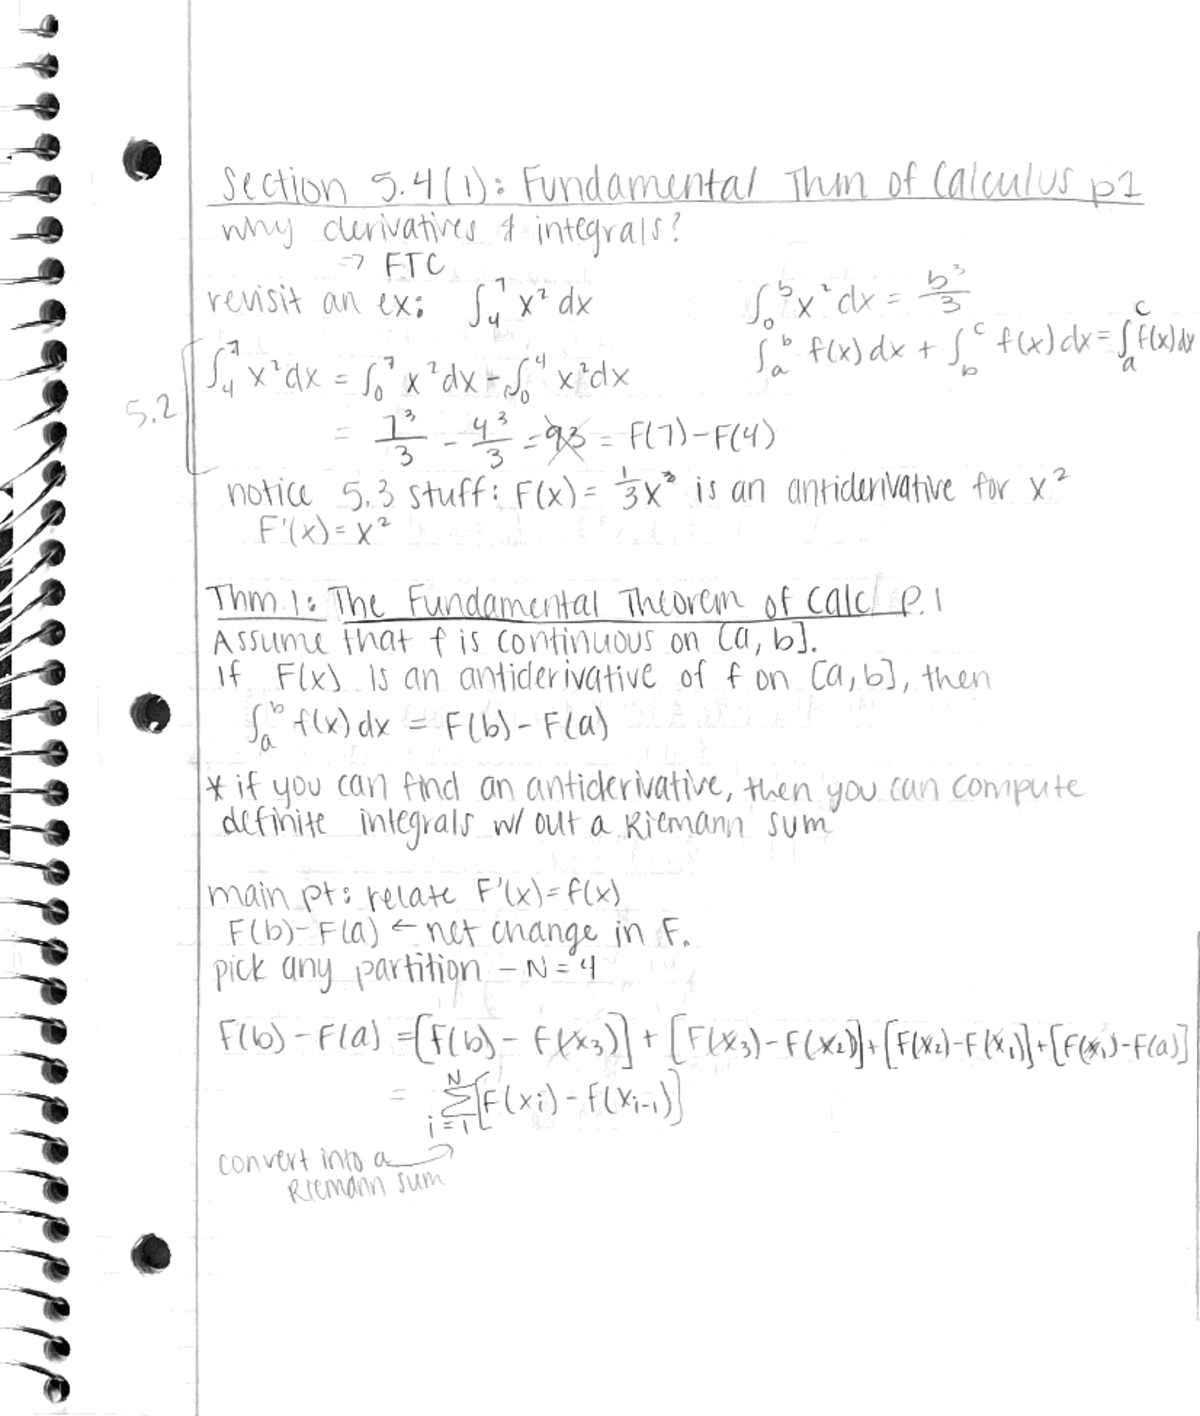 Section 5.4(1): Fundamental Thm of Calculus p1
why derivatives & integrals?
→ FTC
revisit an ex: ∫₄⁷ x² dx
∫₀ᵇ x² dx = b³/3
∫ₐᵇ f(x) dx + ∫_b^c f(x) dx = ∫ₐ^c f(x) dx
5.2
∫₄⁷ x² dx = ∫₀⁷ x² dx - ∫₀⁴ x² dx
= 7³/3 - 4³/3 = 93 = F(7) - F(4)
notice 5.3 stuff: F(x) = 1/3 x³ is an antiderivative for x²
F'(x) = x²
Thm 1: The Fundamental Theorem of Calc P.1
Assume that f is continuous on [a, b].
If F(x) is an antiderivative of f on [a, b], then
∫ₐᵇ f(x) dx = F(b) - F(a)
* if you can find an antiderivative, then you can compute
definite integrals w/out a Riemann sum
main pt: relate F'(x) = f(x)
F(b) - F(a) ← net change in F.
pick any partition - N = 4
F(b) - F(a) = [F(b) - F(x₃)] + [F(x₃) - F(x₂)] + [F(x₂) - F(x₁)] + [F(x₁) - F(a)]
= Σ_{i=1}^N [F(xᵢ) - F(xᵢ₋₁)]
convert into a
Riemann sum